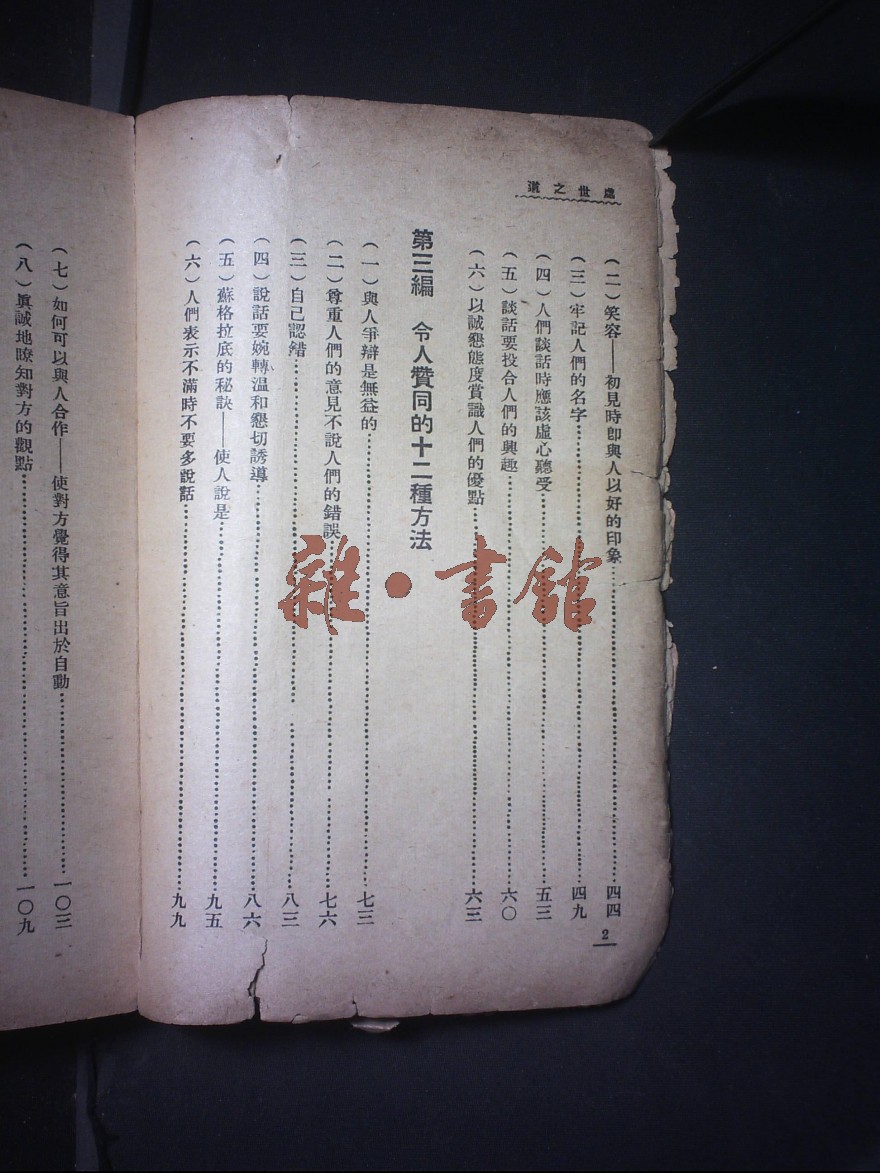 處世之道
（二）笑容——初見時卽與人以好的印象……四四
（三）牢記人們的名字……四九
（四）人們談話時應該虛心聽受……五三
（五）談話要投合人們的興趣……六〇
（六）以誠懇態度賞識人們的優點……六三
第三編　令人贊同的十二種方法
（一）與人爭辯是無益的……七三
（二）尊重人們的意見不說人們的錯誤……七六
（三）自己認錯……八三
（四）說話要婉轉溫和懇切誘導……八六
（五）蘇格拉底的秘訣——使人說是……九五
（六）人們表示不滿時不要多說話……九九
2
（七）如何可以與人合作——使對方覺得其意旨出於自動……一〇三
（八）眞誠地瞭知對方的觀點……一〇九
雜·書館